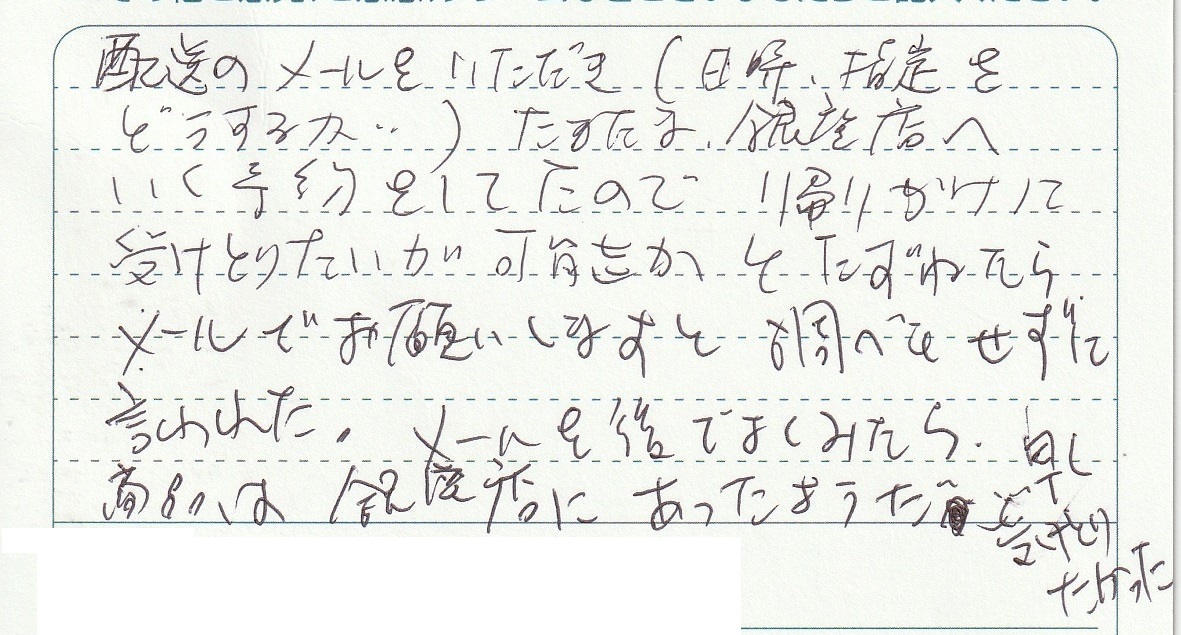 配送のメールをいただき(日時、指定を
どうするか‥)たまたま、銀座店へ
いく予約をしてたので 帰りがけにて
受けとりたいが可能かとたずねたら
メールでお願いしますと調べもせずに
言われた。メールを後でよくみたら、
は銀座店にあったようだ 受けとり
たかった